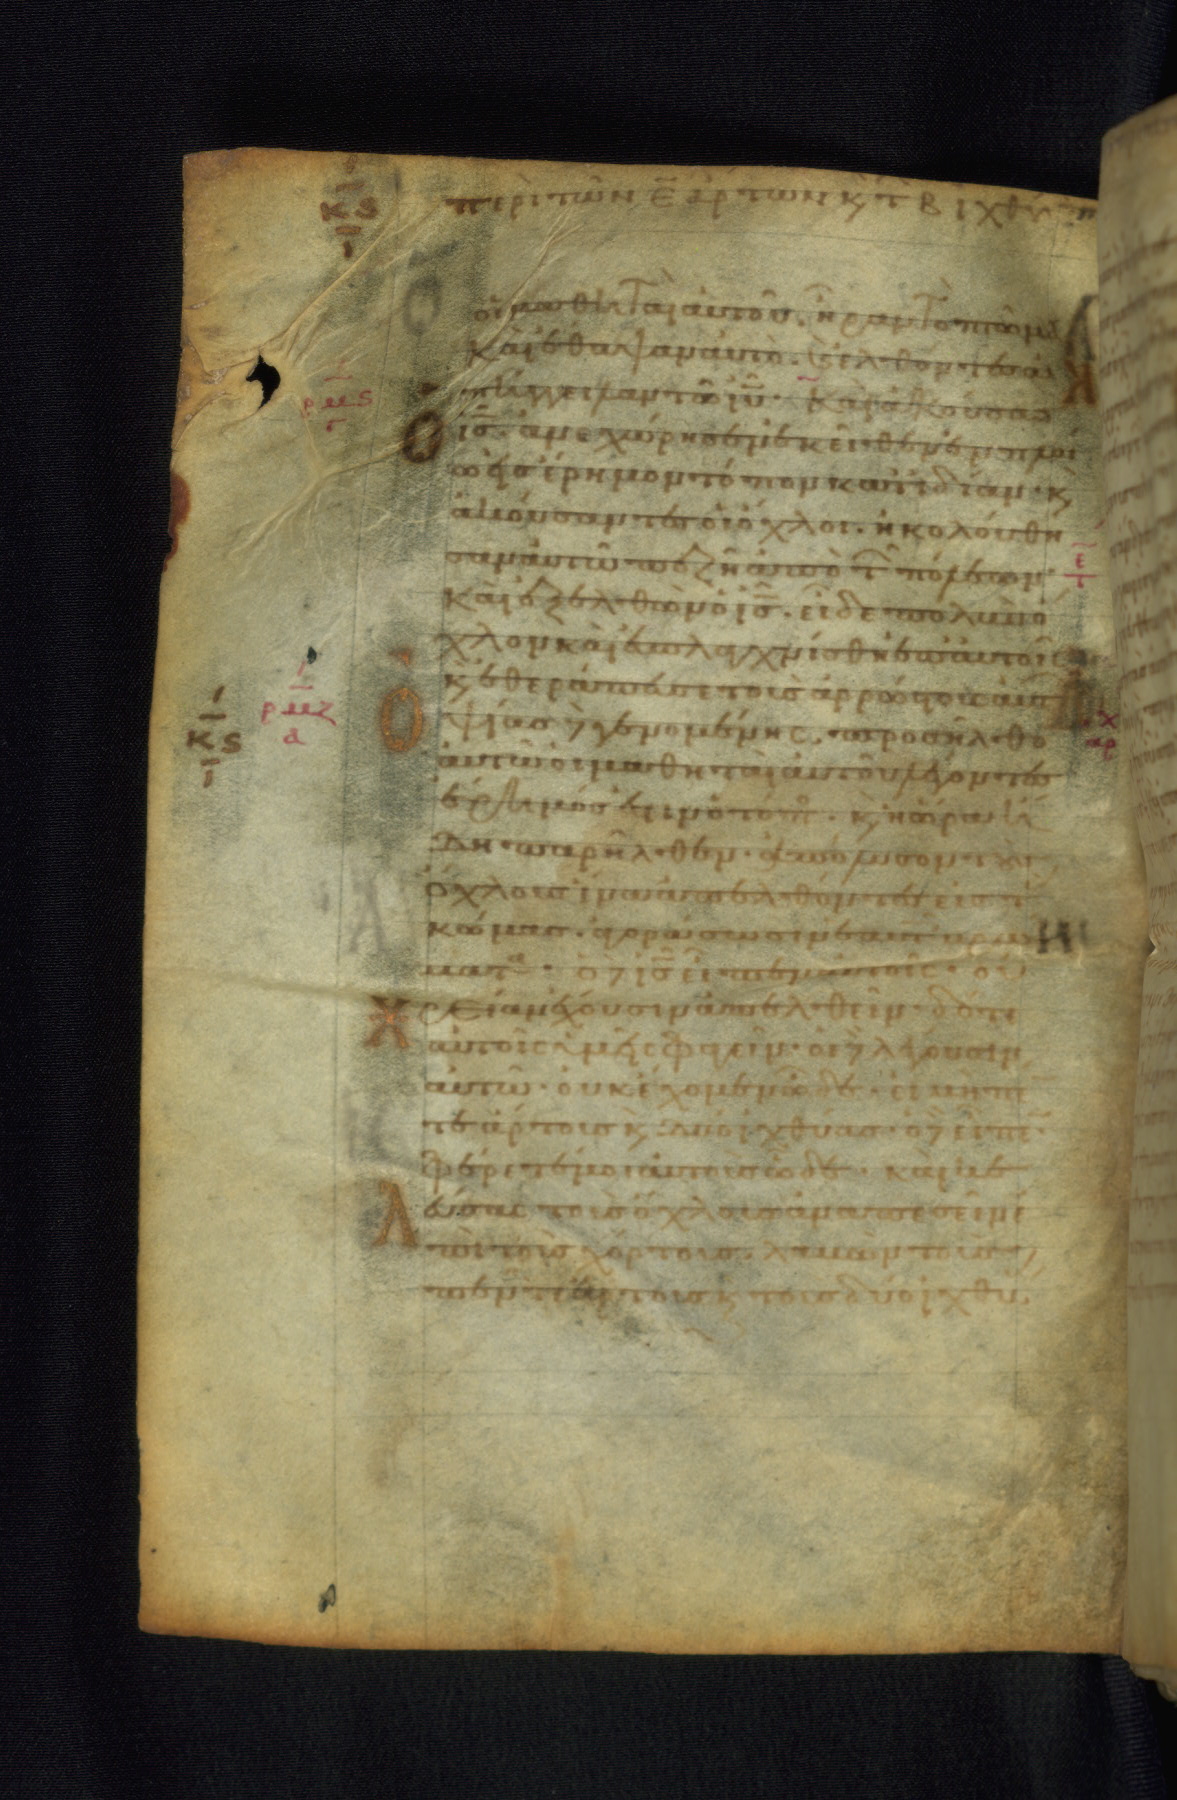 κς περὶ τῶν ε̄ ἄρτων κ τ̀ β ἰχθύ
οἱ μαθηταὶ αὐτοῦ. ἦραν τὸ πτῶμα
καὶ ἔθαψαν αὐτὸ.
ἀπήγγειλαν τῶ ἰῦ. Καὶ ἀκούσας
ρμς
ὁ ἰς̄. ἀνεχώρησεν ἐκεῖθεν ἐν πλοί
ω εἰς ἔρημον τόπον κατ ἰδίαν. κ
ἀκούσαντες οἱ ὄχλοι. ἠκολούθη
σαν αὐτῶ πεζῆ ἀπὸ τ̄ πόλεων
Καὶ ἐξελθὼν ὁ ἰς̄. εἶδε πολὺν ὄ
χλον καὶ ἐσπλαγχνίσθη ἐπ αὐτοῖς
κ ἐθεράπευσε τοὺς ἀρρώστους αὐτ
κς ρμζ Ὀψίας γενομένης. προσῆλθο
αὐτῶ οἱ μαθηταὶ αὐτοῦ λέγοντες
ἔρημός ἐστιν ὁ τόπος. κ ἡ ὥρα ἤ
δη παρῆλθεν. ἀπόλυσον τοὺς
ὄχλους ἵνα ἀπελθόντες εἰς τ
κώμας. ἀγοράσωσιν ἑαυτ βρώ
ματα. ὁ ἰς̄ εἶπεν αὐτοῖς. οὐ
χρείαν ἔχουσιν ἀπελθεῖν. δότε
αὐτοῖς ὑμεῖς φαγεῖν. οἱ λέγουσιν
αὐτῶ. οὐκ ἔχομεν ὧδε. εἰ μὴ πέ
τε ἄρτους κ δύο ἰχθύας. ὁ εἶπε.
φέρετέ μοι αὐτοὺς ὧδε. καὶ κε
λεύσας τοὺς ὄχλους ἀναπεσεῖν ἐ
πὶ τοὺς χόρτους. λαβὼν τοὺς
πέντε ἄρτους κ τοὺς δύο ἰχθύ